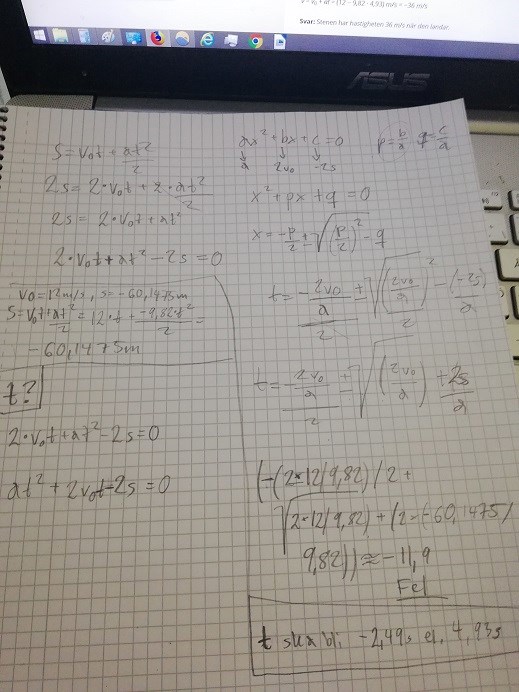 v = v₀ + at = (12 − 9,82 · 4,93) m/s ≈ −36 m/s
Svar: Stenen har hastigheten 36 m/s när den landar.
ASUS
S = v₀t + at²/2
2s = 2·v₀t + 2·at²/2
2s = 2·v₀t + at²
2·v₀t + at² − 2s = 0
v₀ = 12 m/s, s = −60,1475m
S = v₀t + at²/2 = 12·t + −9,82·t²/2 =
−60,1475m
t?
2·v₀t + at² − 2s = 0
at² + 2v₀t − 2s = 0
ax² + bx + c = 0 p = b/a q = c/a
a 2v₀ −2s
x² + px + q = 0
x = −p/2 ± √((p/2)² − q)
t = −(2v₀/a)/2 ± √(((2v₀/a)/2)² − (−2s)/a)
t = −(2v₀/a)/2 ± √(((2v₀/a)/2) + 2s/a)
(−(2*12/9,82)/2 +
√2*12/9,82) + (2*(−60,1475/
9,82)) ≈ −11,9
Fel
t ska bli −2,49s el. 4,93s